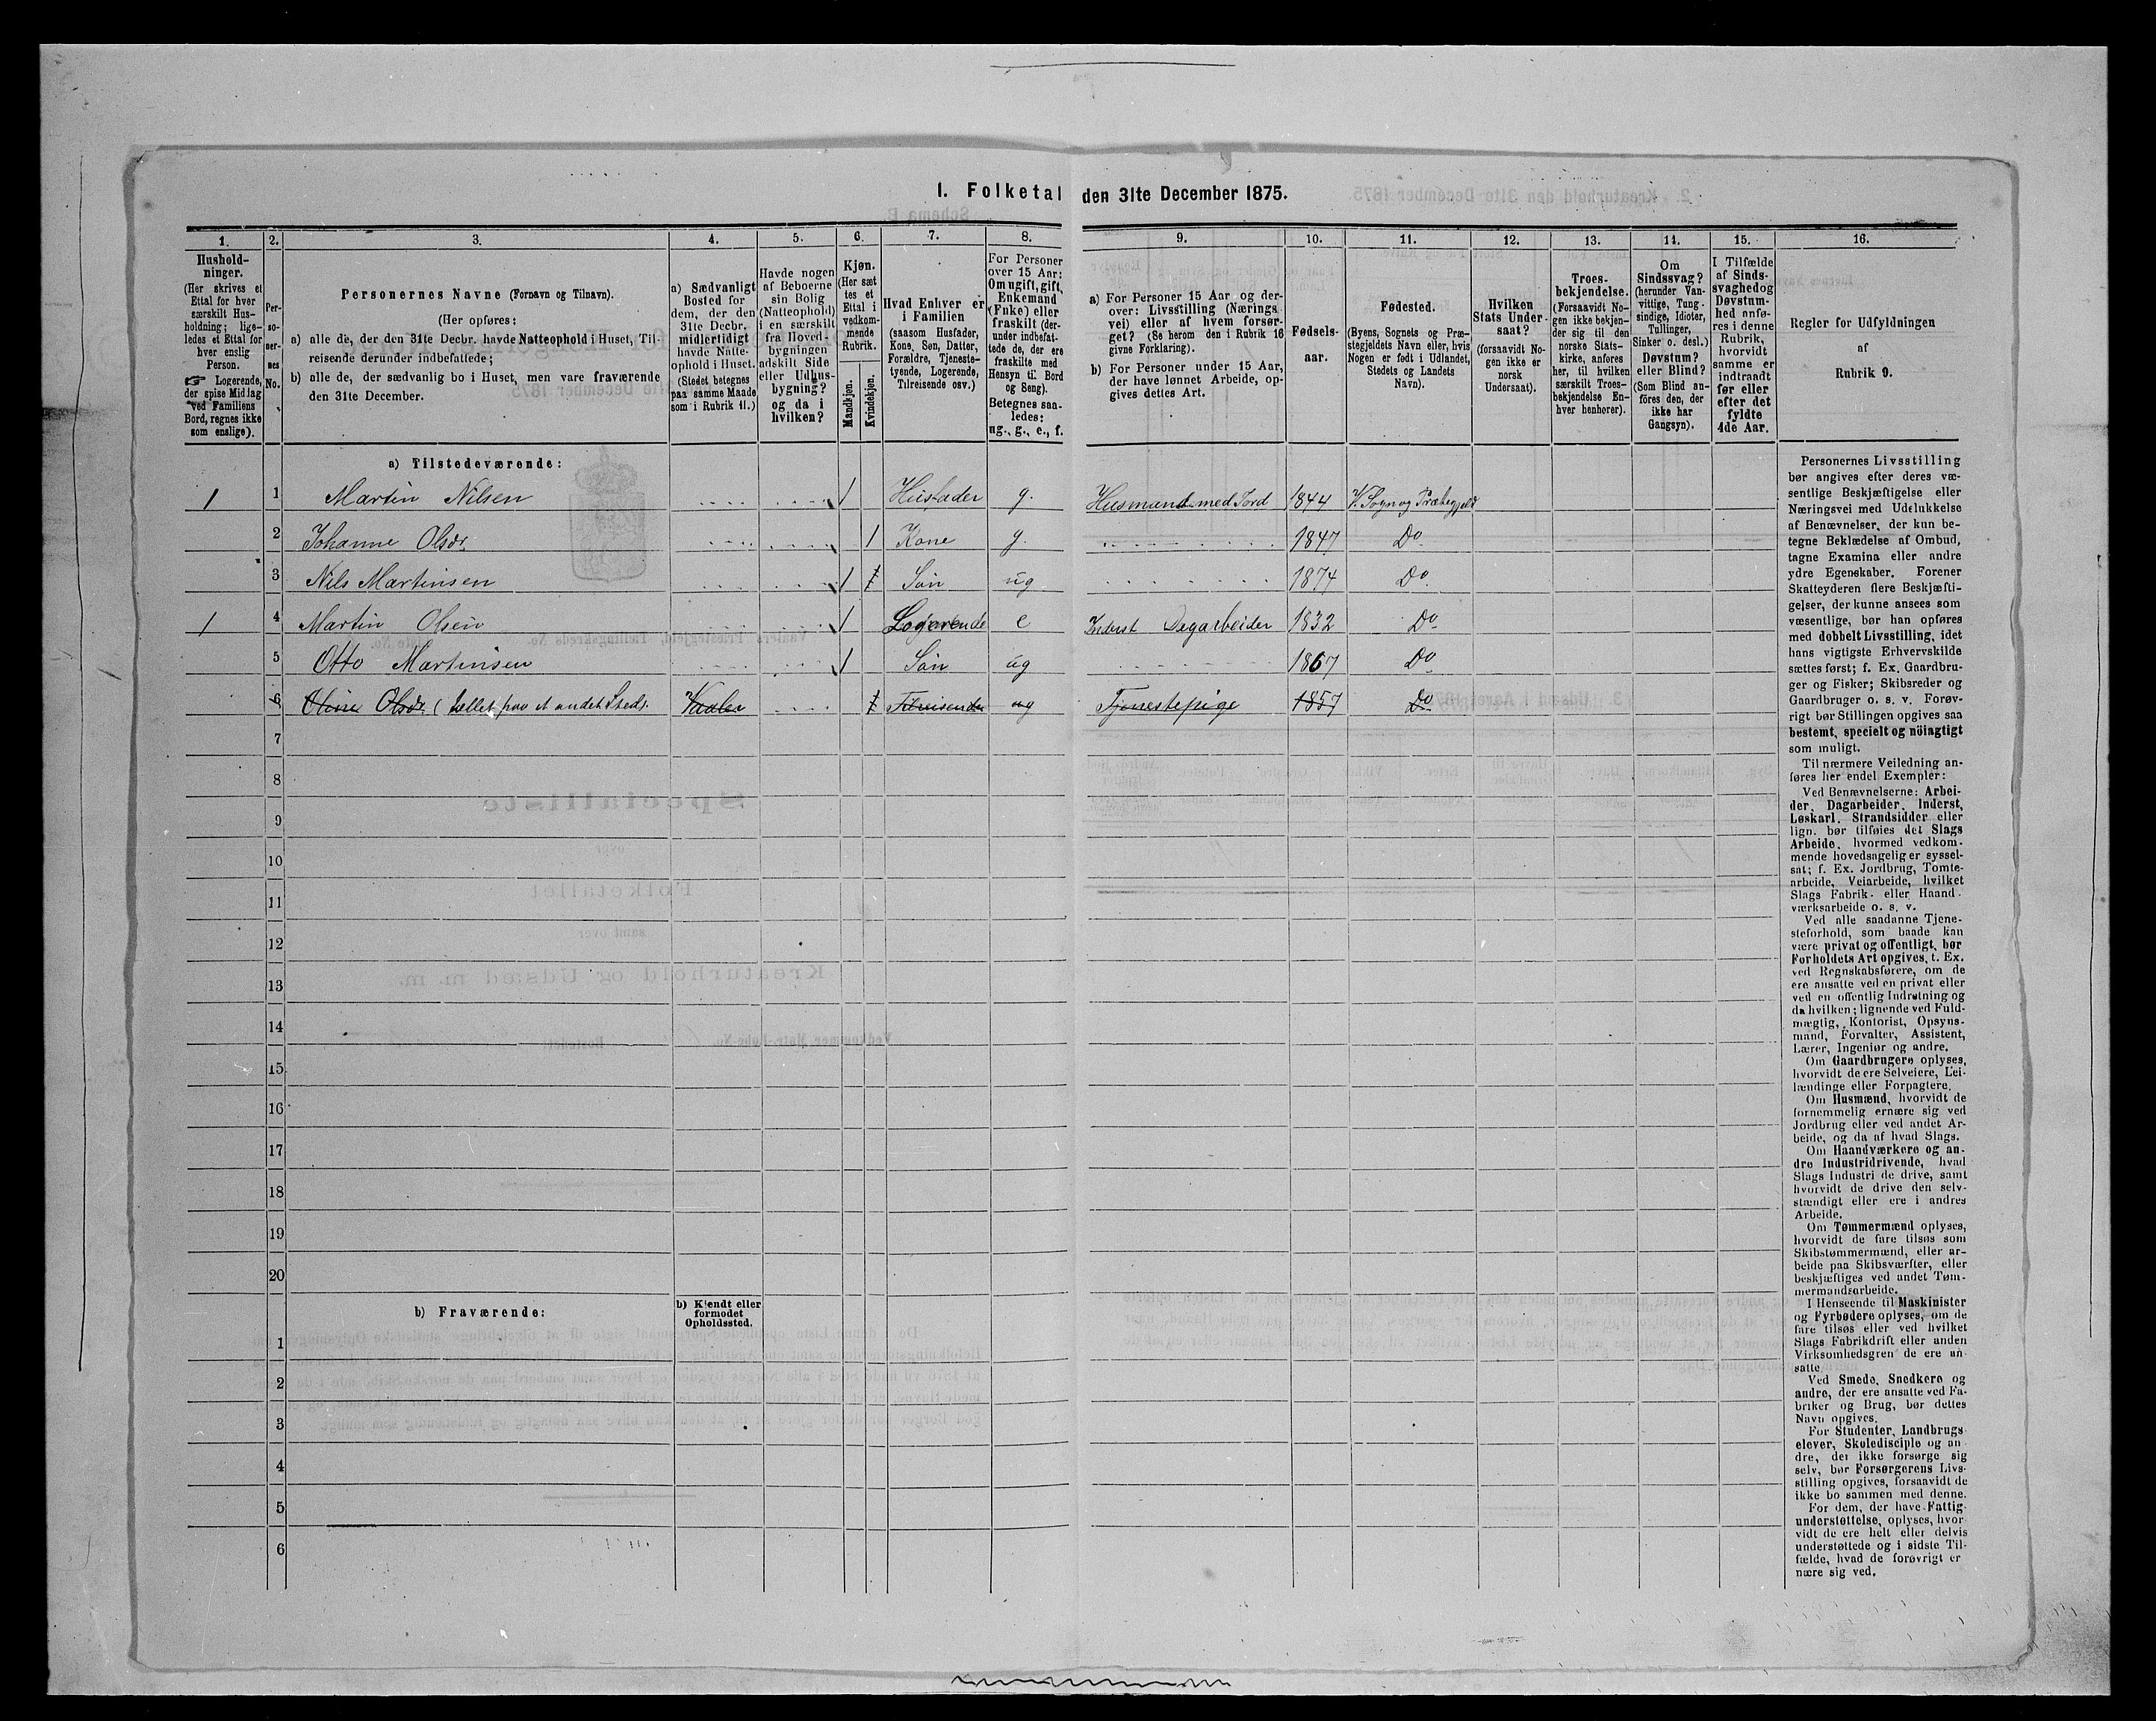 I. Folketal den 31te December 1875.
1. 2. 3. 4. 5. 6. 7. 8. 9. 10. 11. 12. 13. 14. 15. 16.
Hushold-
ninger.
(Her skrives et
Ettal for hver
særskilt Hus-
holdning; lige-
ledes et Ettal for
hver enslig
Person.
☞ Logerende,
der spise Middag
ved Familiens
Bord, regnes ikke
som enslige).
Per-
so-
ner-
nes
No.
Personernes Navne (Fornavn og Tilnavn).
(Her opføres:
a) alle de, der den 31te Decbr. havde Natteophold i Huset, Til-
reisende derunder indbefattede;
b) alle de, der sædvanlig bo i Huset, men vare fraværende
den 31te December.
a) Sædvanligt
Bosted for
dem, der den
31te Decbr.
midlertidigt
havde Natte-
ophold i Huset.
(Stedet betegnes
paa samme Maade
som i Rubrik 11.)
Havde nogen
af Beboerne
sin Bolig
(Natteophold)
i en særskilt
fra Hoved-
bygningen
adskilt Side
eller Udhus-
bygning?
og da i
hvilken?
Kjøn.
(Her sæt
tes et
Ettal i
vedkom-
mende
Rubrik.
Mandkjøn.
Kvindekjøn.
Hvad Enhver er
i Familien
(saasom Husfader,
Kone, Søn, Datter,
Forældre, Tjeneste-
tyende, Logerende,
Tilreisende osv.)
For Personer
over 15 Aar:
Om ugift, gift,
Enkemand
(Enke) eller
fraskilt (der-
under indbefat-
tede de, der ere
fraskilte med
Hensyn til Bord
og Seng).
Betegnes saa-
ledes:
ug., g., e., f.
a) For Personer 15 Aar og der-
over: Livsstilling (Nærings
vei) eller af hvem forsør-
get? (Se herom den i Rubrik 16
givne Forklaring).
b) For Personer under 15 Aar,
der have lønnet Arbeide, op-
gives dettes Art.
Fødsels-
aar.
Fødested.
(Byens, Sognets og Præ-
stegjeldets Navn eller, hvis
Nogen er født i Udlandet,
Stedets og Landets
Navn).
Hvilken
Stats Under-
saat?
(forsaavidt No-
gen ikke er
norsk
Undersaat).
Troes-
bekjendelse.
(Forsaavidt No-
gen ikke bekjen-
der sig til den
norske Stats-
kirke, anføres
her, til hvilken
særskilt Troes-
bekjendelse En-
hver henhører).
Om
Sindssvag?
(herunder Van-
vittige, Tung-
sindige, Idioter,
Tullinger,
Sinker o. desl.)
Døvstum?
eller Blind?
(Som Blind an-
føres den, der
ikke har
Gangsyn).
I Tilfælde
af Sinds-
svaghed og
Døvstum-
hed anfø-
res i denne
Rubrik,
hvorvidt
samme er
indtraadt
før eller
efter det
fyldte
4de Aar.
Regler for Udfyldningen
af
Rubrik 9.
a) Tilstedeværende:
1 1 Martin Nilsen 1 Husfader g. Husmand med Jord 1844 V. Sogn og Præstegjeld
2 Johanne Olsdr. 1 Kone g. 1847 Do
3 Nils Martinsen 1 Søn ug 1874 Do
1 4 Martin Olsen 1 Logerende e Inderst Dagarbeider 1832 Do
5 Otto Martinsen 1 Søn ug 1867 Do
6 Oline Olsdr. (tællet paa et andet Sted). Vaaler 1 Tilreisende ug Tjenestepige 1857 Do
7
8
9
10
11
12
13
14
15
16
17
18
19
20
b) Fraværende:
b) Kjendt eller
formodet
Opholdssted.
1
2
3
4
5
6
Personernes Livsstilling
bør angives efter deres væ-
sentlige Beskjæftigelse eller
Næringsvei med Udelukkelse
af Benævnelser, der kun be-
tegne Beklædelse af Ombud,
tagne Examina eller andre
ydre Egenskaber. Forener
Skatteyderen flere Beskjæfti-
gelser, der kunne ansees som
væsentlige, bør han opføres
med dobbelt Livsstilling, idet
hans vigtigste Erhvervskilde
sættes først; f. Ex. Gaardbru-
ger og Fisker; Skibsreder og
Gaardbruger o. s. v. Forøv-
rigt bør Stillingen opgives saa
bestemt, specielt og nöiagtigt
som muligt.
Til nærmere Veiledning an-
føres her endel Exempler:
Ved Benævnelserne: Arbei-
der, Dagarbeider, Inderst,
Løskarl, Strandsidder eller
lign. bør tilføies det Slags
Arbeide, hvormed vedkom-
mende hovedsagelig er syssel-
sat; f. Ex. Jordbrug, Tomte-
arbeide, Veiarbeide, hvilket
Slags Fabrik- eller Haand-
værksarbeide o. s. v.
Ved alle saadanne Tjene-
steforhold, som baade kan
være privat og offentligt, bør
Forholdets Art opgives, t. Ex.
ved Regnskabsførere, om de
ere ansatte ved en privat eller
ved en offentlig Indretning og
da hvilken; lignende ved Fuld-
mægtig, Kontorist, Opsyns-
mand, Forvalter, Assistent,
Lærer, Ingeniør og andre.
Om Gaardbrugere oplyses,
hvorvidt de ere Selveiere, Lei-
lændinge eller Forpagtere.
Om Husmænd, hvorvidt de
fornemmelig ernære sig ved
Jordbrug eller ved andet Ar-
beide, og da af hvad Slags.
Om Haandværkere og an-
dre Industridrivende, hvad
Slags Industri de drive, samt
hvorvidt de drive den selv-
stændigt eller ere i andres
Arbeide.
Om Tømmermænd oplyses,
hvorvidt de fare tilsøs som
Skibstømmermænd, eller ar-
beide paa Skibsværfter, eller
beskjæftiges ved andet Tøm-
mermandsarbeide.
I Henseende til Maskinister
og Fyrbødere oplyses, om de
fare tilsøs eller ved hvilket
Slags Fabrikdrift eller anden
Virksomhedsgren de ere an-
satte.
Ved Smede, Snedkere og
andre, der ere ansatte ved Fa-
briker og Brug, bør dettes
Navn opgives.
For Studenter, Landbrugs-
elever, Skoledisciple og an-
dre, der ikke forsørge sig
selv, bør Forsørgerens Livs-
stilling opgives, forsaavidt de
ikke bo sammen med denne.
For dem, der have Fattig-
understøttelse, oplyses, hvor-
vidt de ere helt eller delvis
understøttede og i sidste Til-
fælde, hvad de forøvrigt er
nære sig ved.